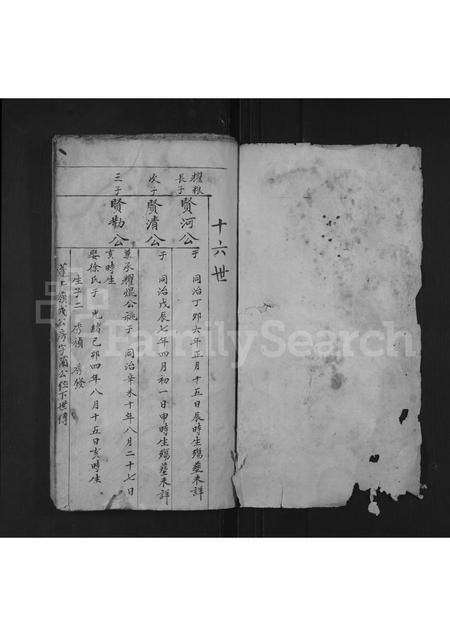 十六世
耀根
長子 賢河公 于 同治丁卯六年正月十五日辰時生殤塟未詳
次子 賢清公 于 同治戊辰七年四月初一日申時生殤塟未詳
三子 賢勤公 兼承耀焜公祧于 同治辛未十年八月二十七日
亥時生
娶徐氏于 光緒己卯四年八月十五日亥時生
生子二
FamilySearch